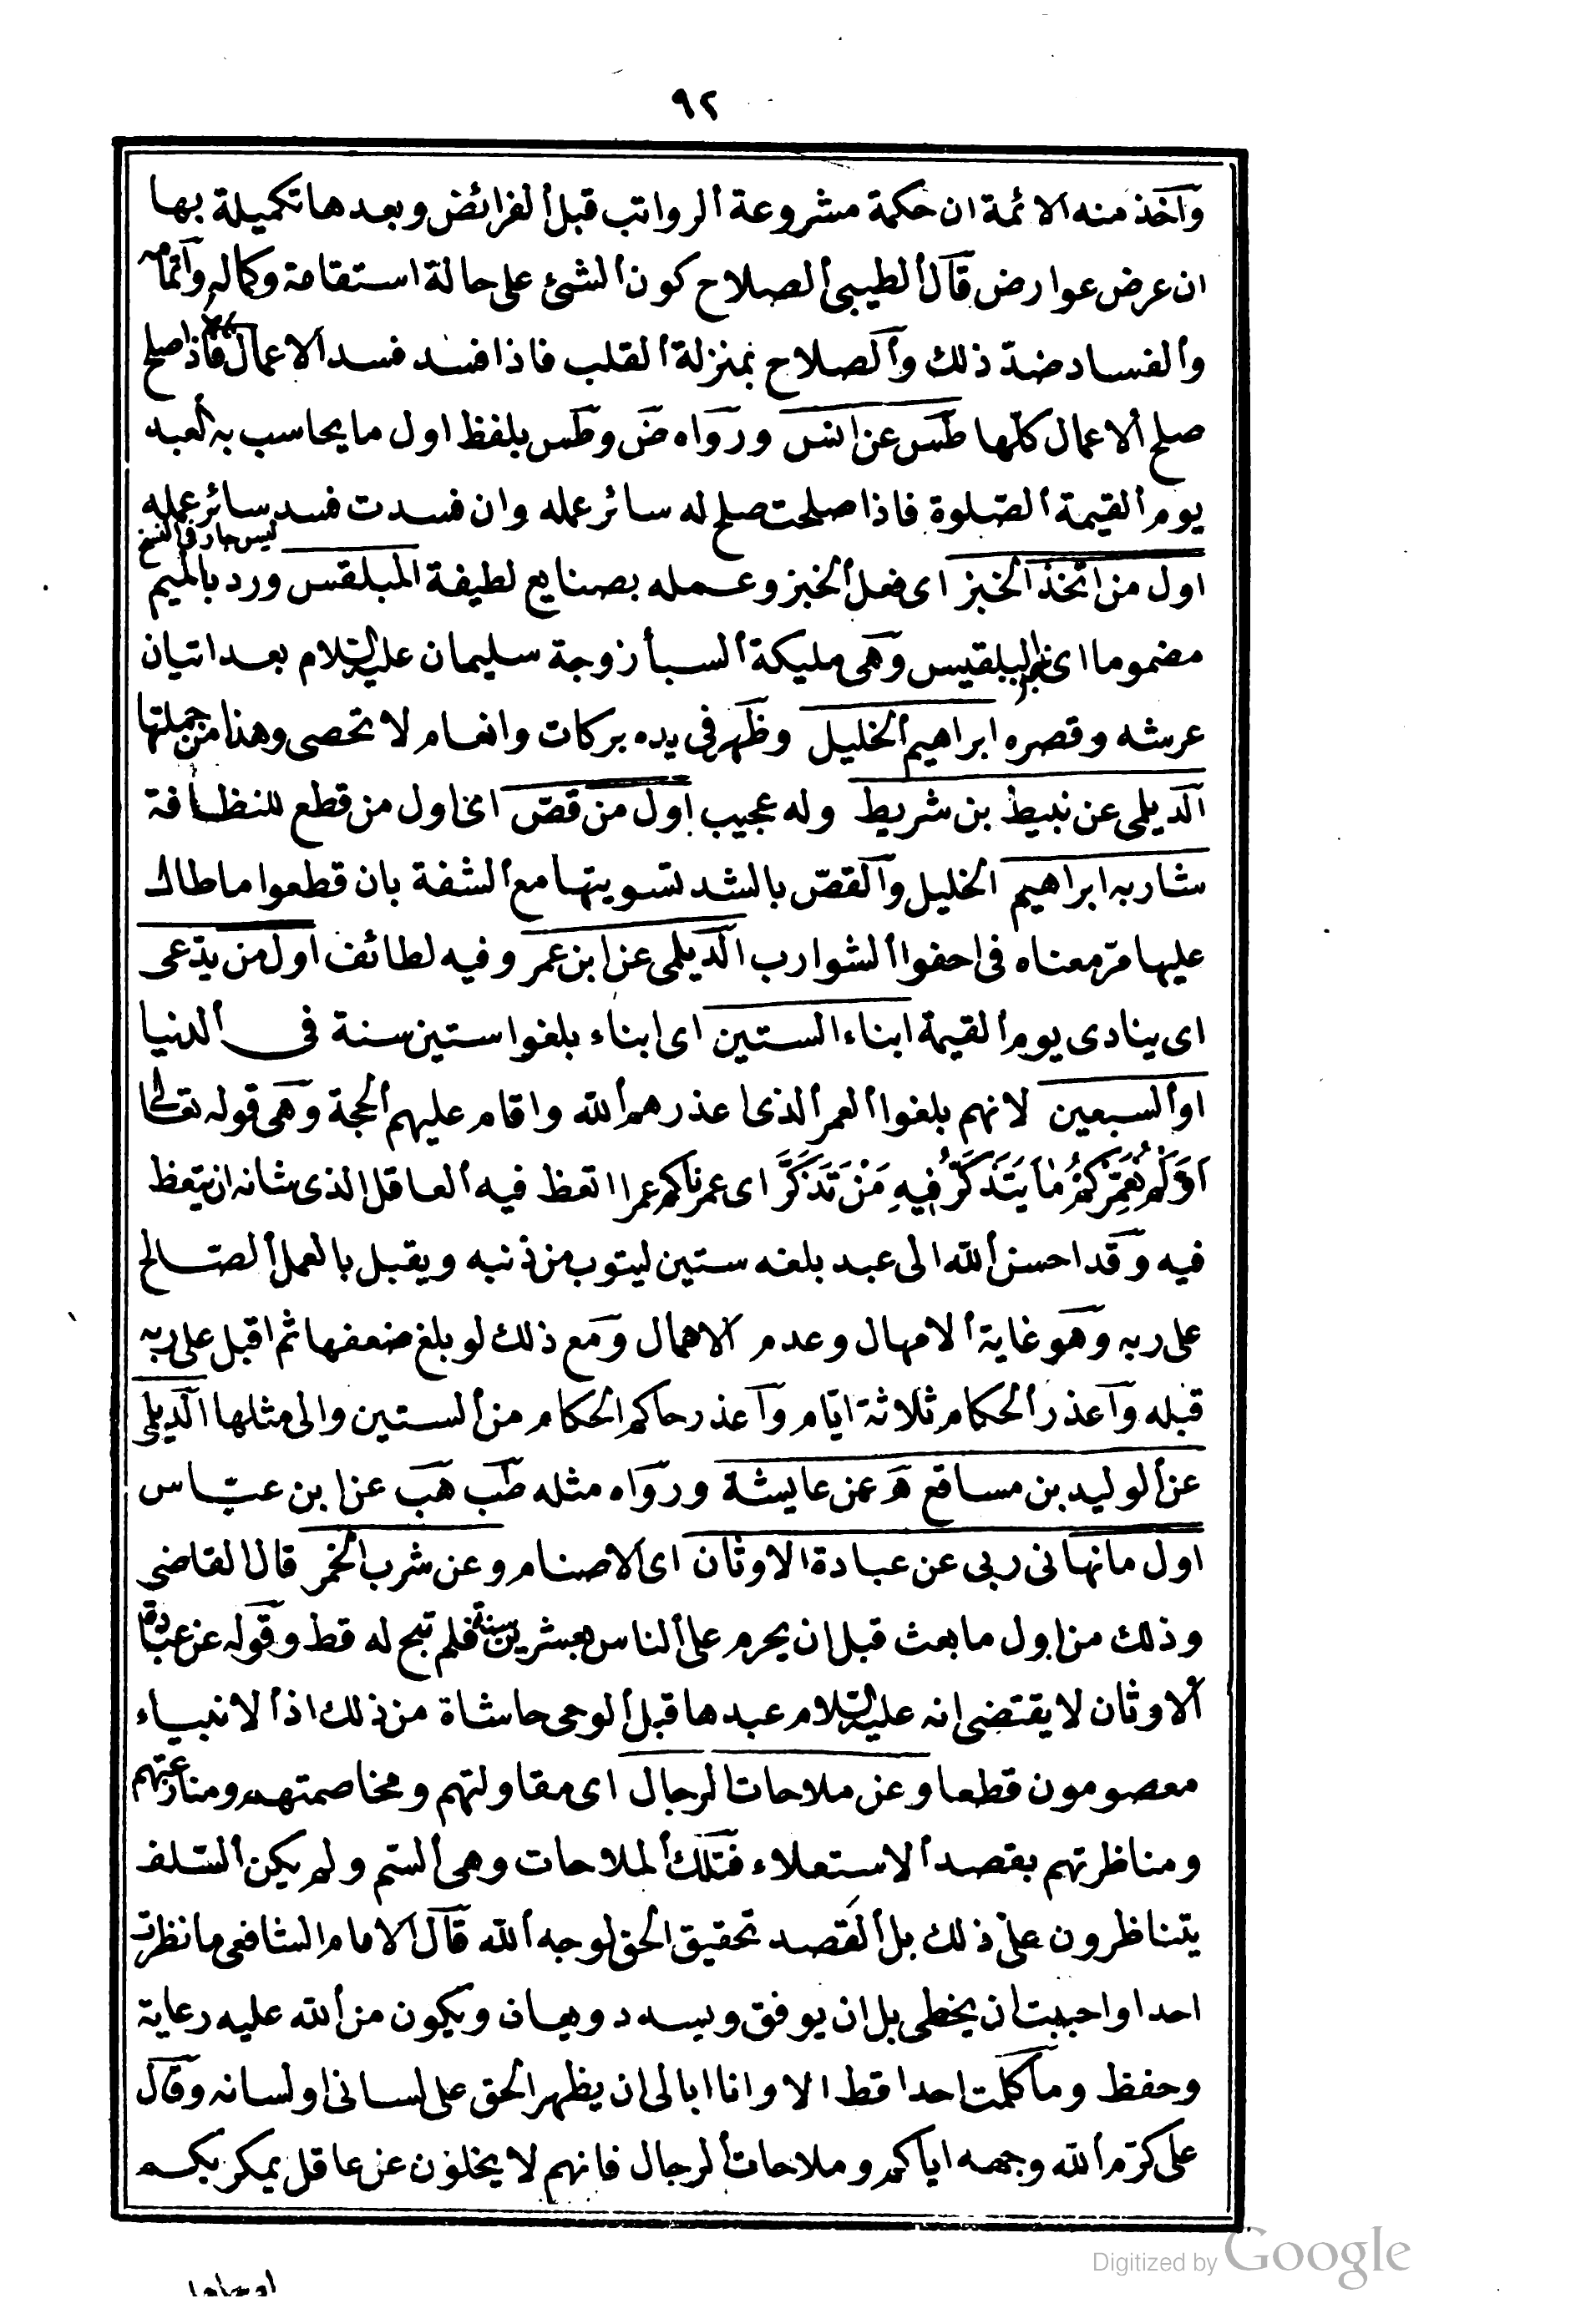 ٩٢
وآخذ منه الائمة ان حكمة مشروعة الرواتب قبل الفرائض وبعدها تكميلة بها
ان عرض عوارض قال الطيبي الصلاح كون الشئ على حالة استقامة وكماله واتمامه
والفساد ضدّ ذلك والصلاح بمنزلة القلب فاذا فسد فسد الاعمال فاذا صلح
صلح الاعمال كلّها طس عن انس ورواه ض وطس بلفظ اول ما يحاسب به العبد
يوم القيمة الصّلوة فاذا صلحت صلح له سائر عمله وان فسدت فسد سائر عمله
ليس جار في النسخ
اول من اتّخذ الخبز اى فعل الخبز وعمله بصنايع لطيفة المبلقس ورد بالميم
مضموما اى البلقيس وهى مليكة السبأ زوجة سليمان عليه السّلام بعد اتيان
عرشه وقصره ابراهيم الخليل وظهر فى يده بركات وانعام لا تحصى وهذا من جملتها
الديلمى عن نبيط بن شريط وله عجيب اول من قصّ اى اول من قطع للنظافة
شاربه ابراهيم الخليل والقصّ بالشد تسويتها مع الشفة بان قطعوا ما طال
عليها مرّ معناه فى احفوا الشوارب الديلمى عن ابن عمر وفيه لطائف اول من يدّعى
اى ينادى يوم القيمة ابناء الستين اى ابناء بلغوا ستين سنة فى الدنيا
او السبعين لانهم بلغوا العمر الذى اعذرهم الله واقام عليهم الحجة وهى قوله تعالى
اَوَلَمْ نُعَمِّرْكُمْ مَا يَتَذَكَّرُ فِيهِ مَنْ تَذَكَّرَ اى عمرناكم عمرا اتعظ فيه العاقل الذى شانه ان يتعظ
فيه وقد احسن الله الى عبد بلغه ستين ليتوب من ذنبه ويقبل بالعمل الصّالح
على ربه وهو غاية الامهال وعدم الاهمال ومع ذلك لو بلغ ضعفها ثم اقبل على ربه
قبله وآعذر الحكام ثلاثة ايّام وآعذر حاكم الحكام من الستين والى مثلها الديلى
عن الوليد بن مساقع هَ عن عايشة ورواه مثله طب هب عن ابن عبّاس
اول ما نهانى ربى عن عبادة الاوثان اى الاصنام وعن شرب الخمر قال القاضى
وذلك من اول ما بعث قبل ان يحرم على الناس بعشرين سنة فلم تبح له قط وقوله عن عبادة
الاوثان لا يقتضى انه عليه السّلام عبدها قبل الوحى حاشاة من ذلك اذ الانبياء
معصومون قطعا وعن ملاحات الرجال اى مقاولتهم ومخاصمتهم ومنازعتهم
ومناظرتهم بقصد الاستعلاء فتلك الملاحات وهى الستم ولم يكن السّلف
يتناظرون على ذلك بل القصد تحقيق الحق لوجه الله قال الامام الشافعى ما نظرت
احدا واحببت ان يخطى بل ان يوفق ويسدد ويعان ويكون من الله عليه رعاية
وحفظ وما كلمت احدا قط الا وانا ابالى ان يظهر الحق على لسانى او لسانه وقال
على كرّم الله وجهه اياكم وملاحات الرجال فانهم لا يخلون عن عاقل يمكر بكم
Digitized by Google